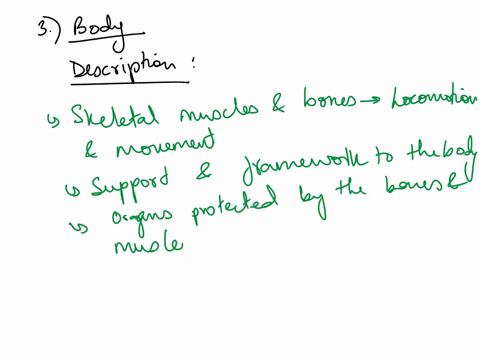 3.) Body
Description :
↳ Skeletal muscles & bones → Locomotion
& movement
↳ Support & framework to the body
↳ Organs protected by the bones &
muscle